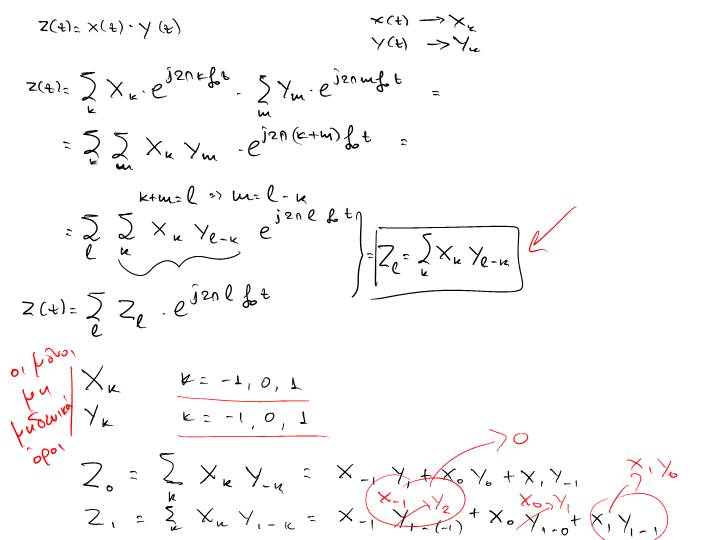 z(t) = x(t) · y(t)
x(t) → Xₖ
y(t) → Yₖ
z(t) = ∑ₖ Xₖ · e^{j2πkf₀t} · ∑ₘ Yₘ · e^{j2πmf₀t} =
= ∑ₖ ∑ₘ Xₖ Yₘ · e^{j2π(k+m)f₀t} =
k+m=l => m=l-k
= ∑_l ∑ₖ Xₖ Y_{l-k} e^{j2πlf₀t}
= Z_l = ∑ₖ Xₖ Y_{l-k}
z(t) = ∑_l Z_l · e^{j2πlf₀t}
οι μόνοι
μη
μηδενικά
όροι
Xₖ k = -1, 0, 1
Yₖ k = -1, 0, 1
→ 0
Z₀ = ∑ₖ Xₖ Y₋ₖ = X₋₁ Y₁ + X₀ Y₀ + X₁ Y₋₁
X₋₁ Y₂
X₀ Y₁
X₁ Y₀
Z₁ = ∑ₖ Xₖ Y_{1-k} = X₋₁ Y_{1-(-1)} + X₀ Y_{1-0} + X₁ Y_{1-1}